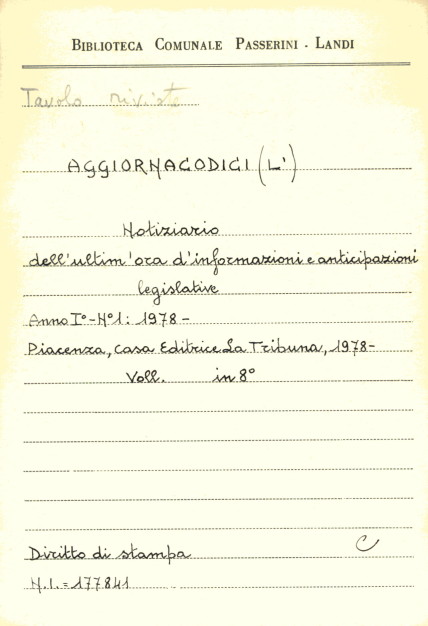 BIBLIOTECA COMUNALE PASSERINI - LANDI
Tavolo riviste
AGGIORNACODICI (L')
Notiziario
dell'ultim'ora d'informazioni e anticipazioni
legislative
Anno I°-N°1: 1978-
Piacenza, Casa Editrice La Tribuna, 1978-
Voll. in 8°
C
Diritto di stampa
N.I.=177841